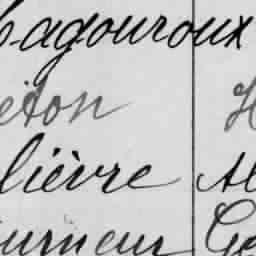 agouroux
eton
lièvre Al
urneur Ge